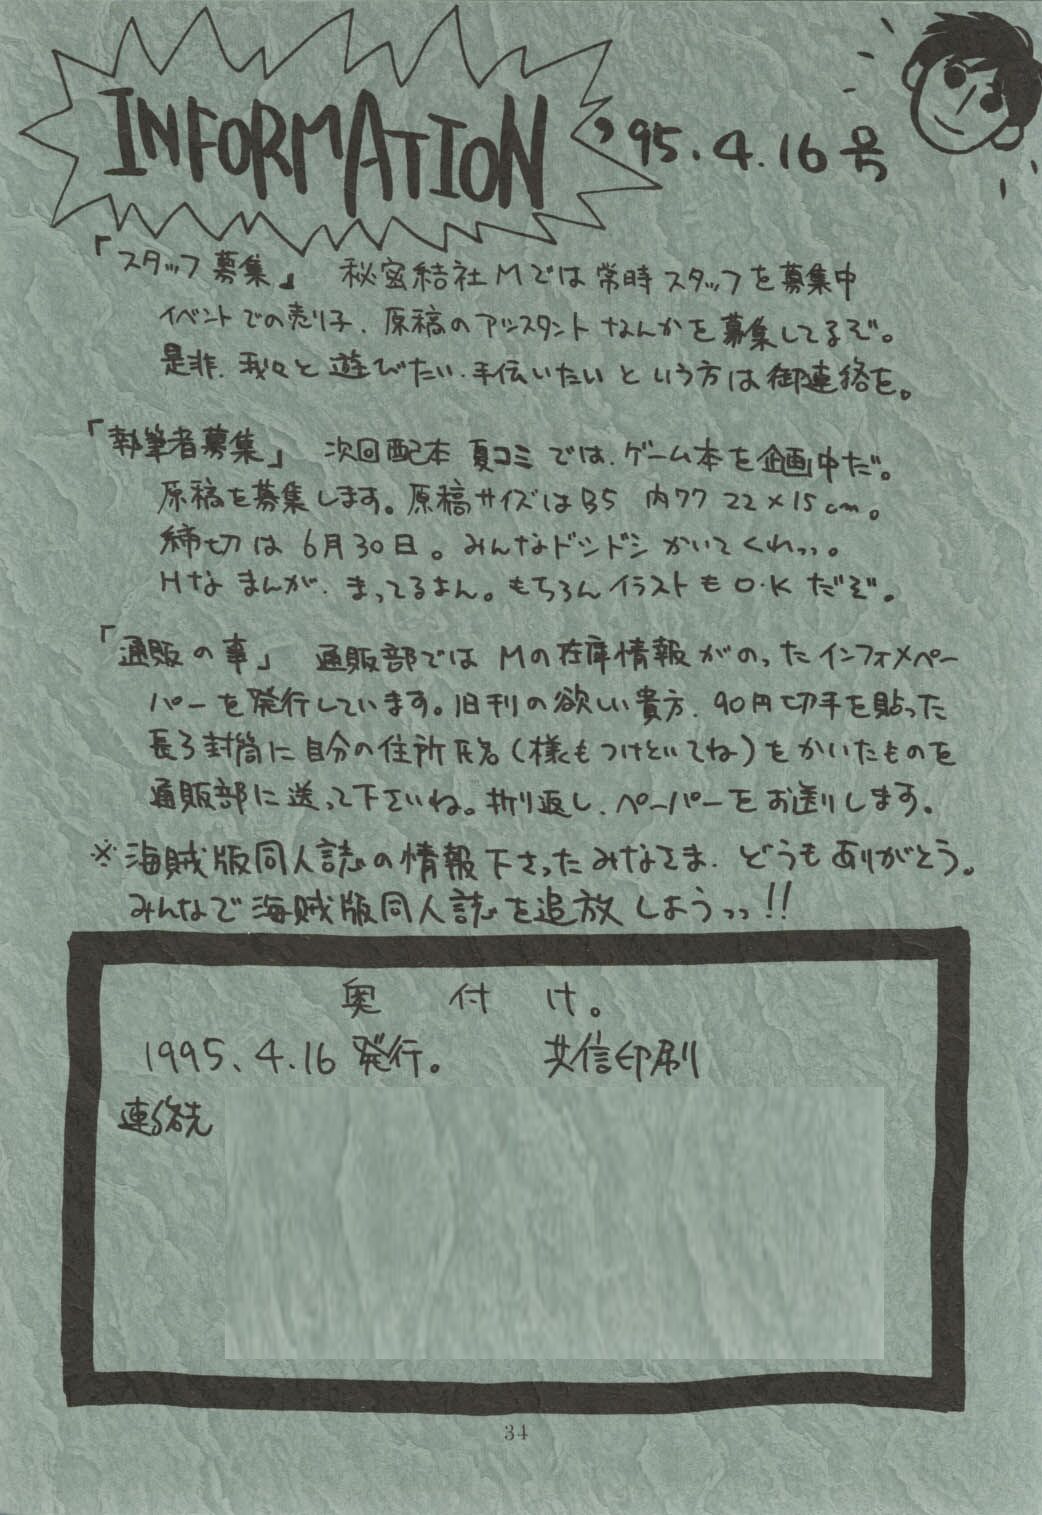 INFORMATION '95.4.16号
「スタッフ募集」 秘密結社Mでは常時スタッフを募集中
イベントでの売り子、原稿のアシスタントなんかを募集してるぞ。
是非、我々と遊びたい、手伝いたいという方は御連絡を。
「執筆者募集」 次回配本 夏コミでは、ゲーム本を企画中だ。
原稿を募集します。原稿サイズはB5 内ワク 22×15cm。
締切は 6月30日。みんなドシドシかいてくれっっ。
Hなまんが、まってるよん。もちろんイラストもO.Kだぞ。
「通販の事」 通販部ではMの在庫情報がのったインフォメペー
パーを発行しています。旧刊の欲しい貴方、90円切手を貼った
長3封筒に自分の住所氏名(様もつけといてね)をかいたものを
通販部に送って下さいね。折り返し、ペーパーをお送りします。
※海賊版同人誌の情報下さったみなさま、どうもありがとう。
みんなで海賊版同人誌を追放しようっっ!!
奥付け。
1995.4.16発行。 共信印刷
連絡先
34